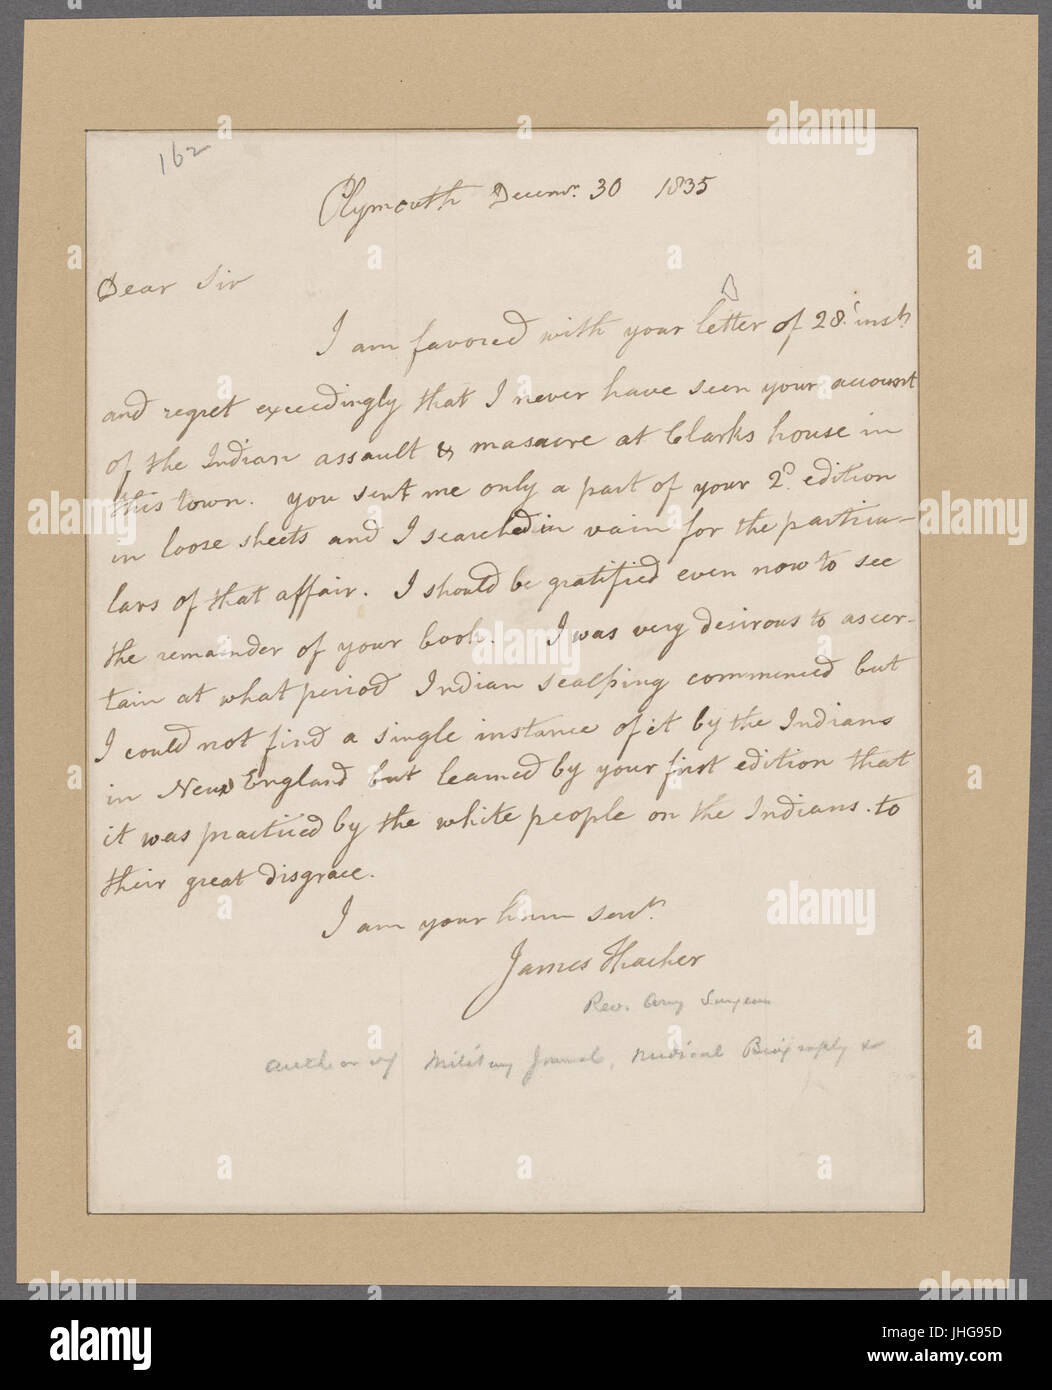 162
Plymouth Decemr. 30 1835
Dear Sir
I am favored with your letter of 28. inst
and regret exceedingly that I never have seen your account
of the Indian assault & masacre at Clarks house in
this town. you sent me only a part of your 2d. edition
in loose sheets and I searched in vain for the particu-
lars of that affair. I should be gratified even now to see
the remainder of your book. I was very desirous to ascer-
tain at what period Indian scalping commenced but
I could not find a single instance of it by the Indians
in New England but learned by your first edition that
it was practiced by the white people on the Indians. to
their great disgrace.
I am your hum servt.
James Thacher
Rev. Army Surgeon
author of Military Journal, Medical Biography &c
alamy
Image ID: JHG95D
www.alamy.com